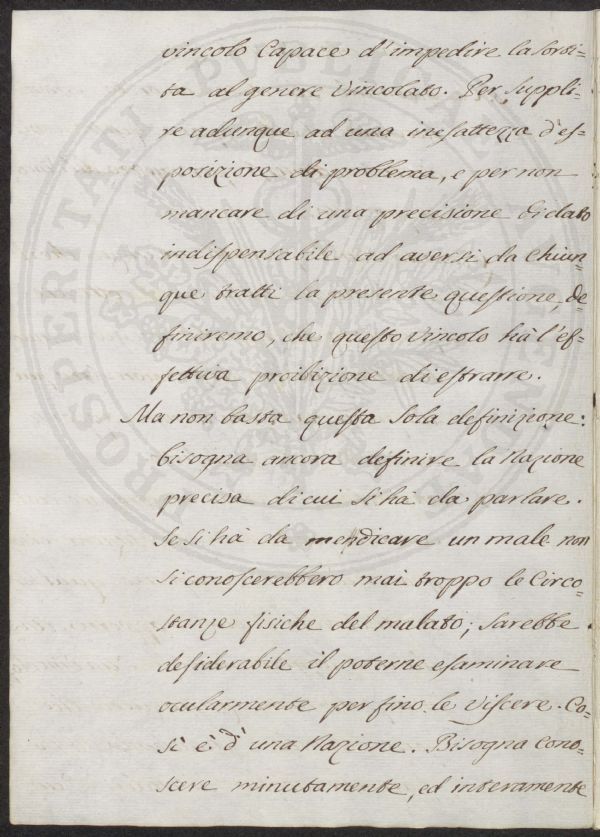 vincolo Capace d'impedire la Sorti-
ta al genere Vincolato. Per Suppli-
re adunque ad una inesattezza d'es-
posizione di problema, e per non
mancare di una precisione di dato
indispensabile ad aversi da Chiun-
que tratti la presente questione, de-
finiremo, che questo Vincolo hà l'ef-
fettiva proibizione di estrarre.
Ma non basta questa Sola definizione:
bisogna ancora definire la Nazione
precisa di cui si hà da parlare.
Se si hà da medicare un male non
si conoscerebbero mai troppo le Circo-
stanze fisiche del malato; Sarebbe
desiderabile il poterne esaminare
ocularmente per fino le Viscere. Co-
sì è d'una Nazione. Bisogna Cono-
scere minutamente, ed interamente
PROSPERITATI PUBLICAE